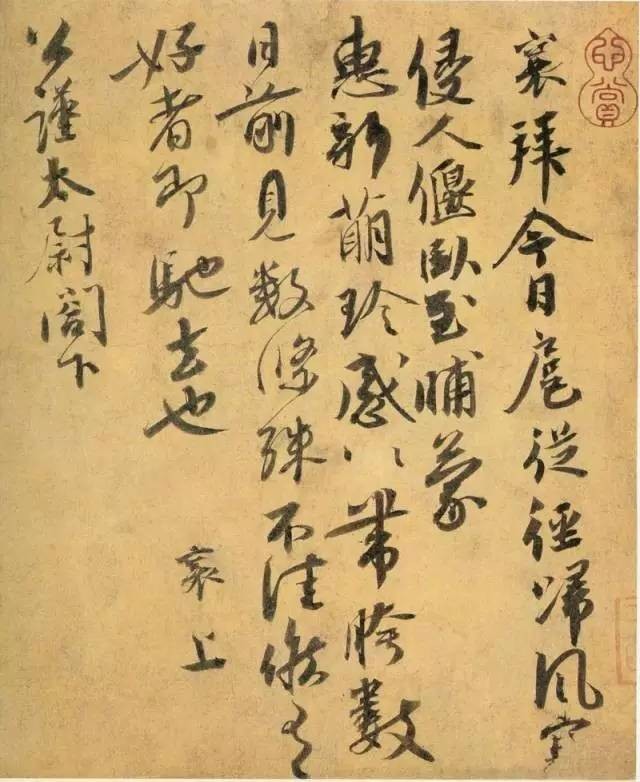 襄拜今日扈從徑歸風霾
侵人偃臥至晡蒙
惠新萌珍感珍感帶胯數
日前見數條殊不佳候有
好者即馳去也
襄上
公謹太尉閤下